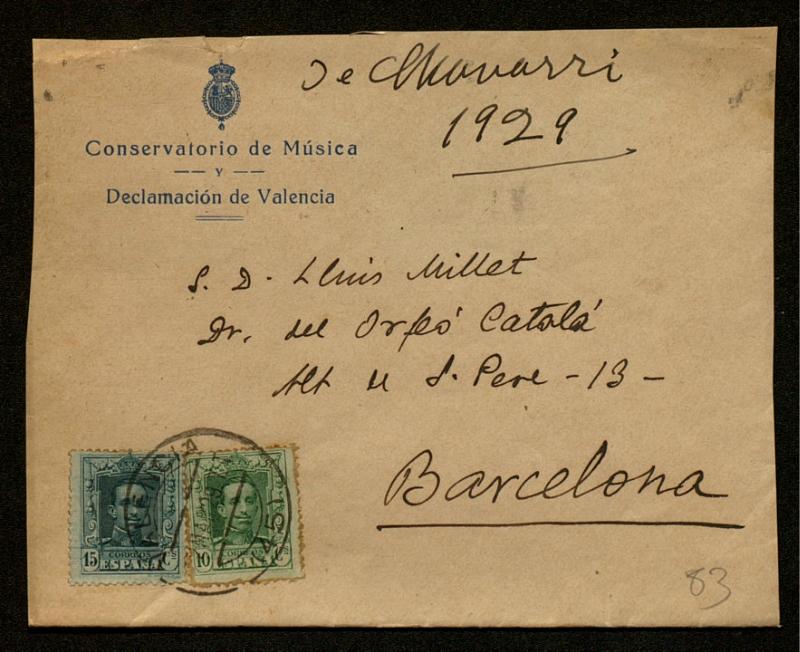 De Chavarri
1929
Conservatorio de Música
y
Declamación de Valencia
S. D. Lluis Millet
Dr. del Orfeó Catalá
Alt de S. Pere - 13 -
Barcelona
VALENCIA
15
CORREOS
ESPAÑA
10
CORREOS
ESPAÑA
83